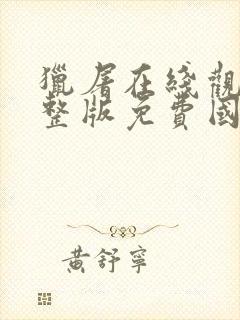 獵屠在綫觀
整版免費國
黃舒寧